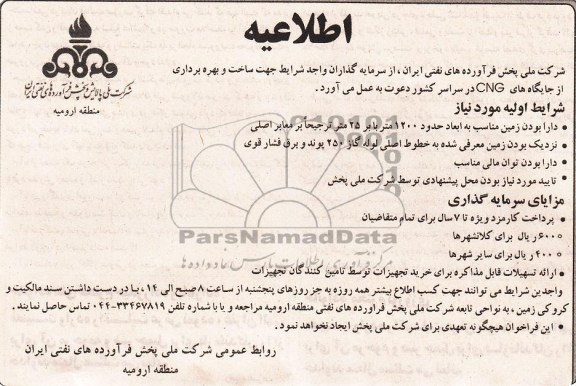 اطلاعیه
شرکت ملی پالایش و پخش فرآورده های نفتی ایران
منطقه ارومیه
شرکت ملی پخش فرآورده های نفتی ایران ، از سرمایه گذاران واجد شرایط جهت ساخت و بهره برداری
از جایگاه های CNG در سراسر کشور دعوت به عمل می آورد.
شرایط اولیه مورد نیاز
• دارا بودن زمین مناسب به ابعاد حدود ۱۲۰۰ متر با بر ۲۵ متر ترجیحا بر معابر اصلی
• نزدیک بودن زمین معرفی شده به خطوط اصلی لوله گاز ۲۵۰ پوند و برق فشار قوی
• دارا بودن توان مالی مناسب
• تایید مورد نیاز بودن محل پیشنهادی توسط شرکت ملی پخش
مزایای سرمایه گذاری
• پرداخت کارمزد ویژه تا ۷ سال برای تمام متقاضیان
○ ۶۰۰ ریال برای کلانشهرها
○ ۴۰۰ ریال برای سایر شهرها
ParsNamadData
پایگاه فرآوری اطلاعات پارس نماد داده ها
• ارائه تسهیلات قابل مذاکره برای خرید تجهیزات توسط تامین کنندگان تجهیزات
واجدین شرایط می توانند جهت کسب اطلاع بیشتر همه روزه به جز روزهای پنجشنبه از ساعت ۸ صبح الی ۱۴ ، با در دست داشتن سند مالکیت و
کروکی زمین ، به نواحی تابعه شرکت ملی پخش فرآورده های نفتی منطقه ارومیه مراجعه و یا با شماره تلفن ۳۳۴۶۷۸۱۹-۰۴۴ تماس حاصل نمایند .
• این فراخوان هیچگونه تعهدی برای شرکت ملی پخش ایجاد نخواهد نمود.
روابط عمومی شرکت ملی پخش فرآورده های نفتی ایران
منطقه ارومیه